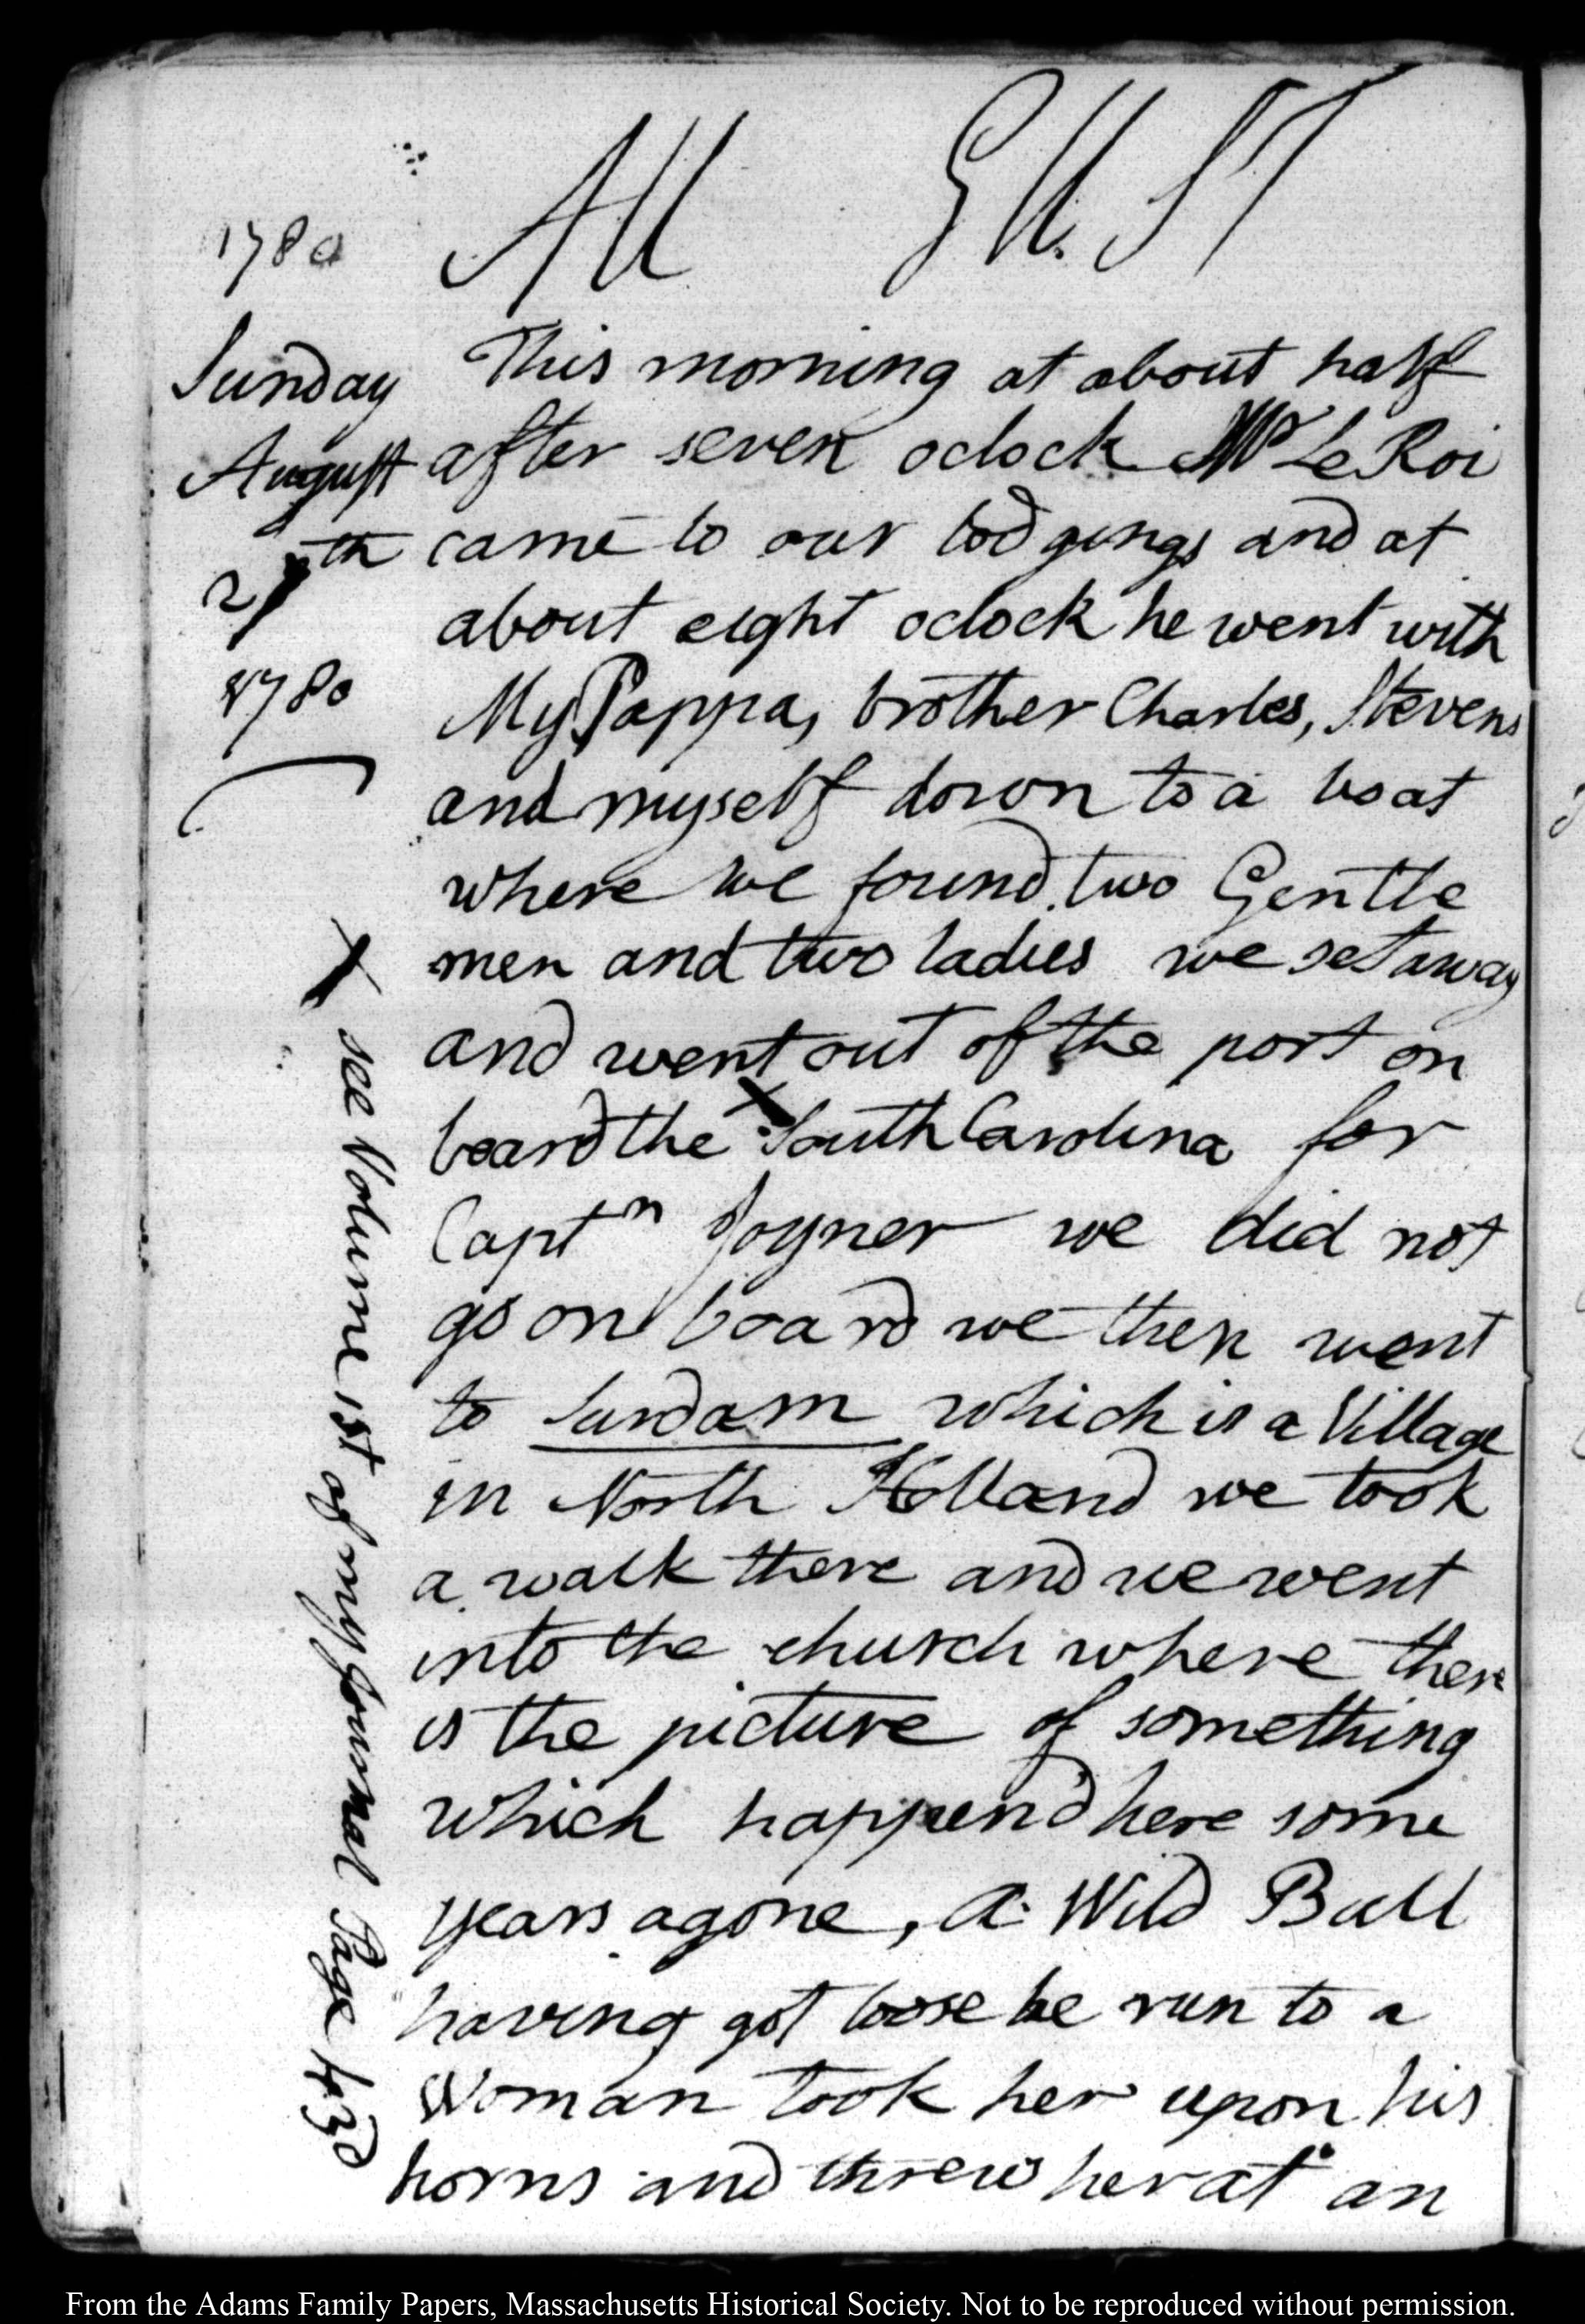 AUGUST
1780
Sunday
August
27th
1780
This morning at about half
after seven oclock Mr Le Roi
came to our lodgings and at
about eight oclock he went with
My Pappa, brother Charles, Stevens
and myself down to a boat
where we found two Gentle
men and two ladies we set away
and went out of the port on
board the X South Carolina for
Captn Joyner we did not
go on board we then went
to Surdam which is a Village
in North Holland we took
a walk there and we went
into the church where there
is the picture of something
which happen'd here some
years agone, a Wild Bull
having got loose he run to a
Woman took her upon his
horns and threw her at an
X see Volume 1st of my Journal Page 43d
From the Adams Family Papers, Massachusetts Historical Society. Not to be reproduced without permission.